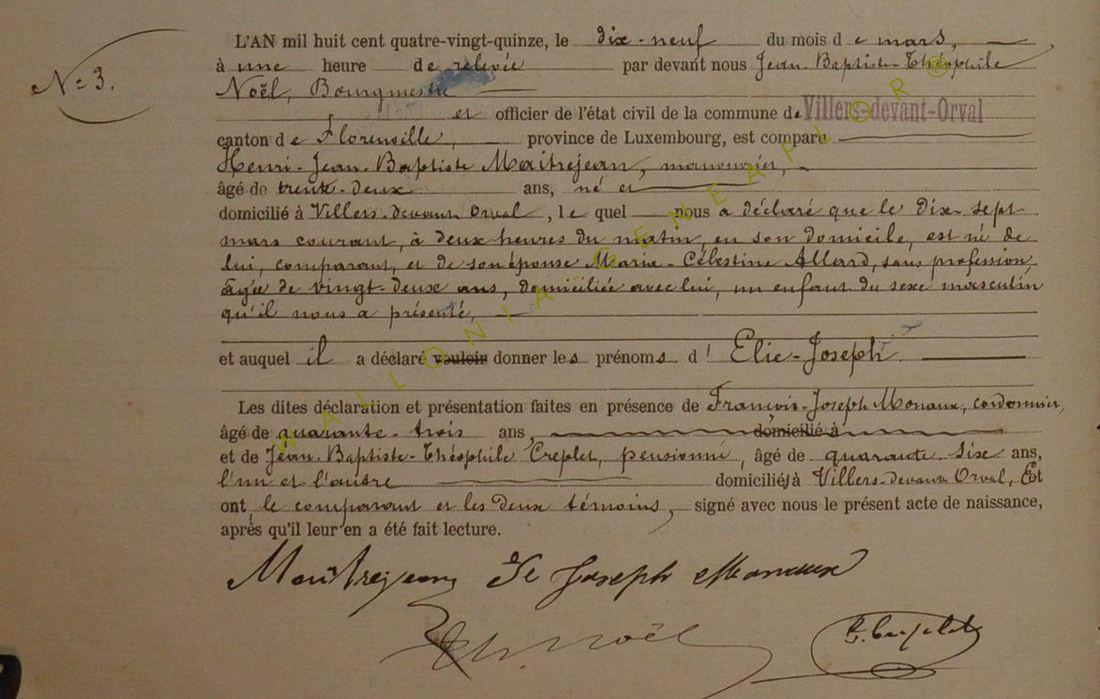 L'AN mil huit cent quatre-vingt-quinze, le dix-neuf du mois de mars,
N° 3.
à une heure de relevée par devant nous Jean-Baptiste-Théophile
Noël, Bourgmestre
et officier de l'état civil de la commune de Villers-devant-Orval
canton de Florenville, province de Luxembourg, est comparu
Henri-Jean-Baptiste Maitrejean, manouvrier,
âgé de trente-deux ans, né et
domicilié à Villers-devant Orval, le quel nous a déclaré que le dix-sept
mars courant, à deux heures du matin, en son domicile, est né de
lui, comparant, et de son épouse Marie-Célestine Allard, sans profession,
âgée de vingt-deux ans, domiciliée avec lui, un enfant du sexe masculin
qu'il nous a présenté,
et auquel il a déclaré vouloir donner les prénoms d'Elie-Joseph
Les dites déclaration et présentation faites en présence de François-Joseph Monaux, cordonnier,
âgé de quarante-trois ans, domicilié à
et de Jean-Baptiste-Théophile Creplet, pensionné, âgé de quarante-six ans,
l'un et l'autre domiciliés à Villers-devant Orval, Et
ont le comparant et les deux témoins, signé avec nous le présent acte de naissance,
après qu'il leur en a été fait lecture.
Maitrejean Joseph Monaux
Th. Noël
T. Creplet
WALLONIA GENEAFLOR®